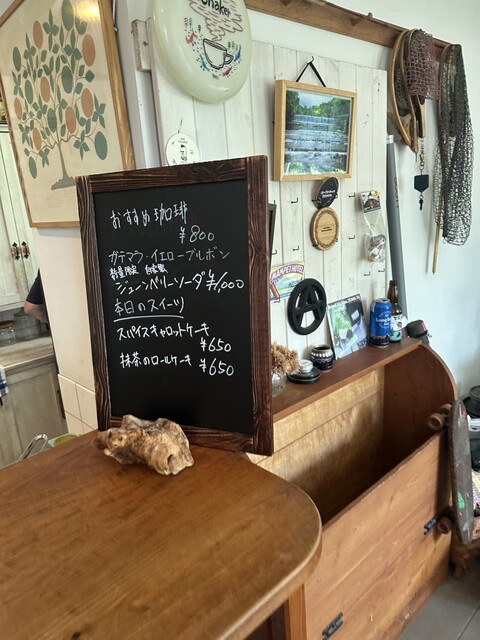 おすすめ珈琲
¥800
ガテマラ・イエローブルボン
数量限定 自家製
ジューンベリーソーダ ¥1,000
本日のスイーツ
スパイスキャロットケーキ
¥650
抹茶のロールケーキ ¥650